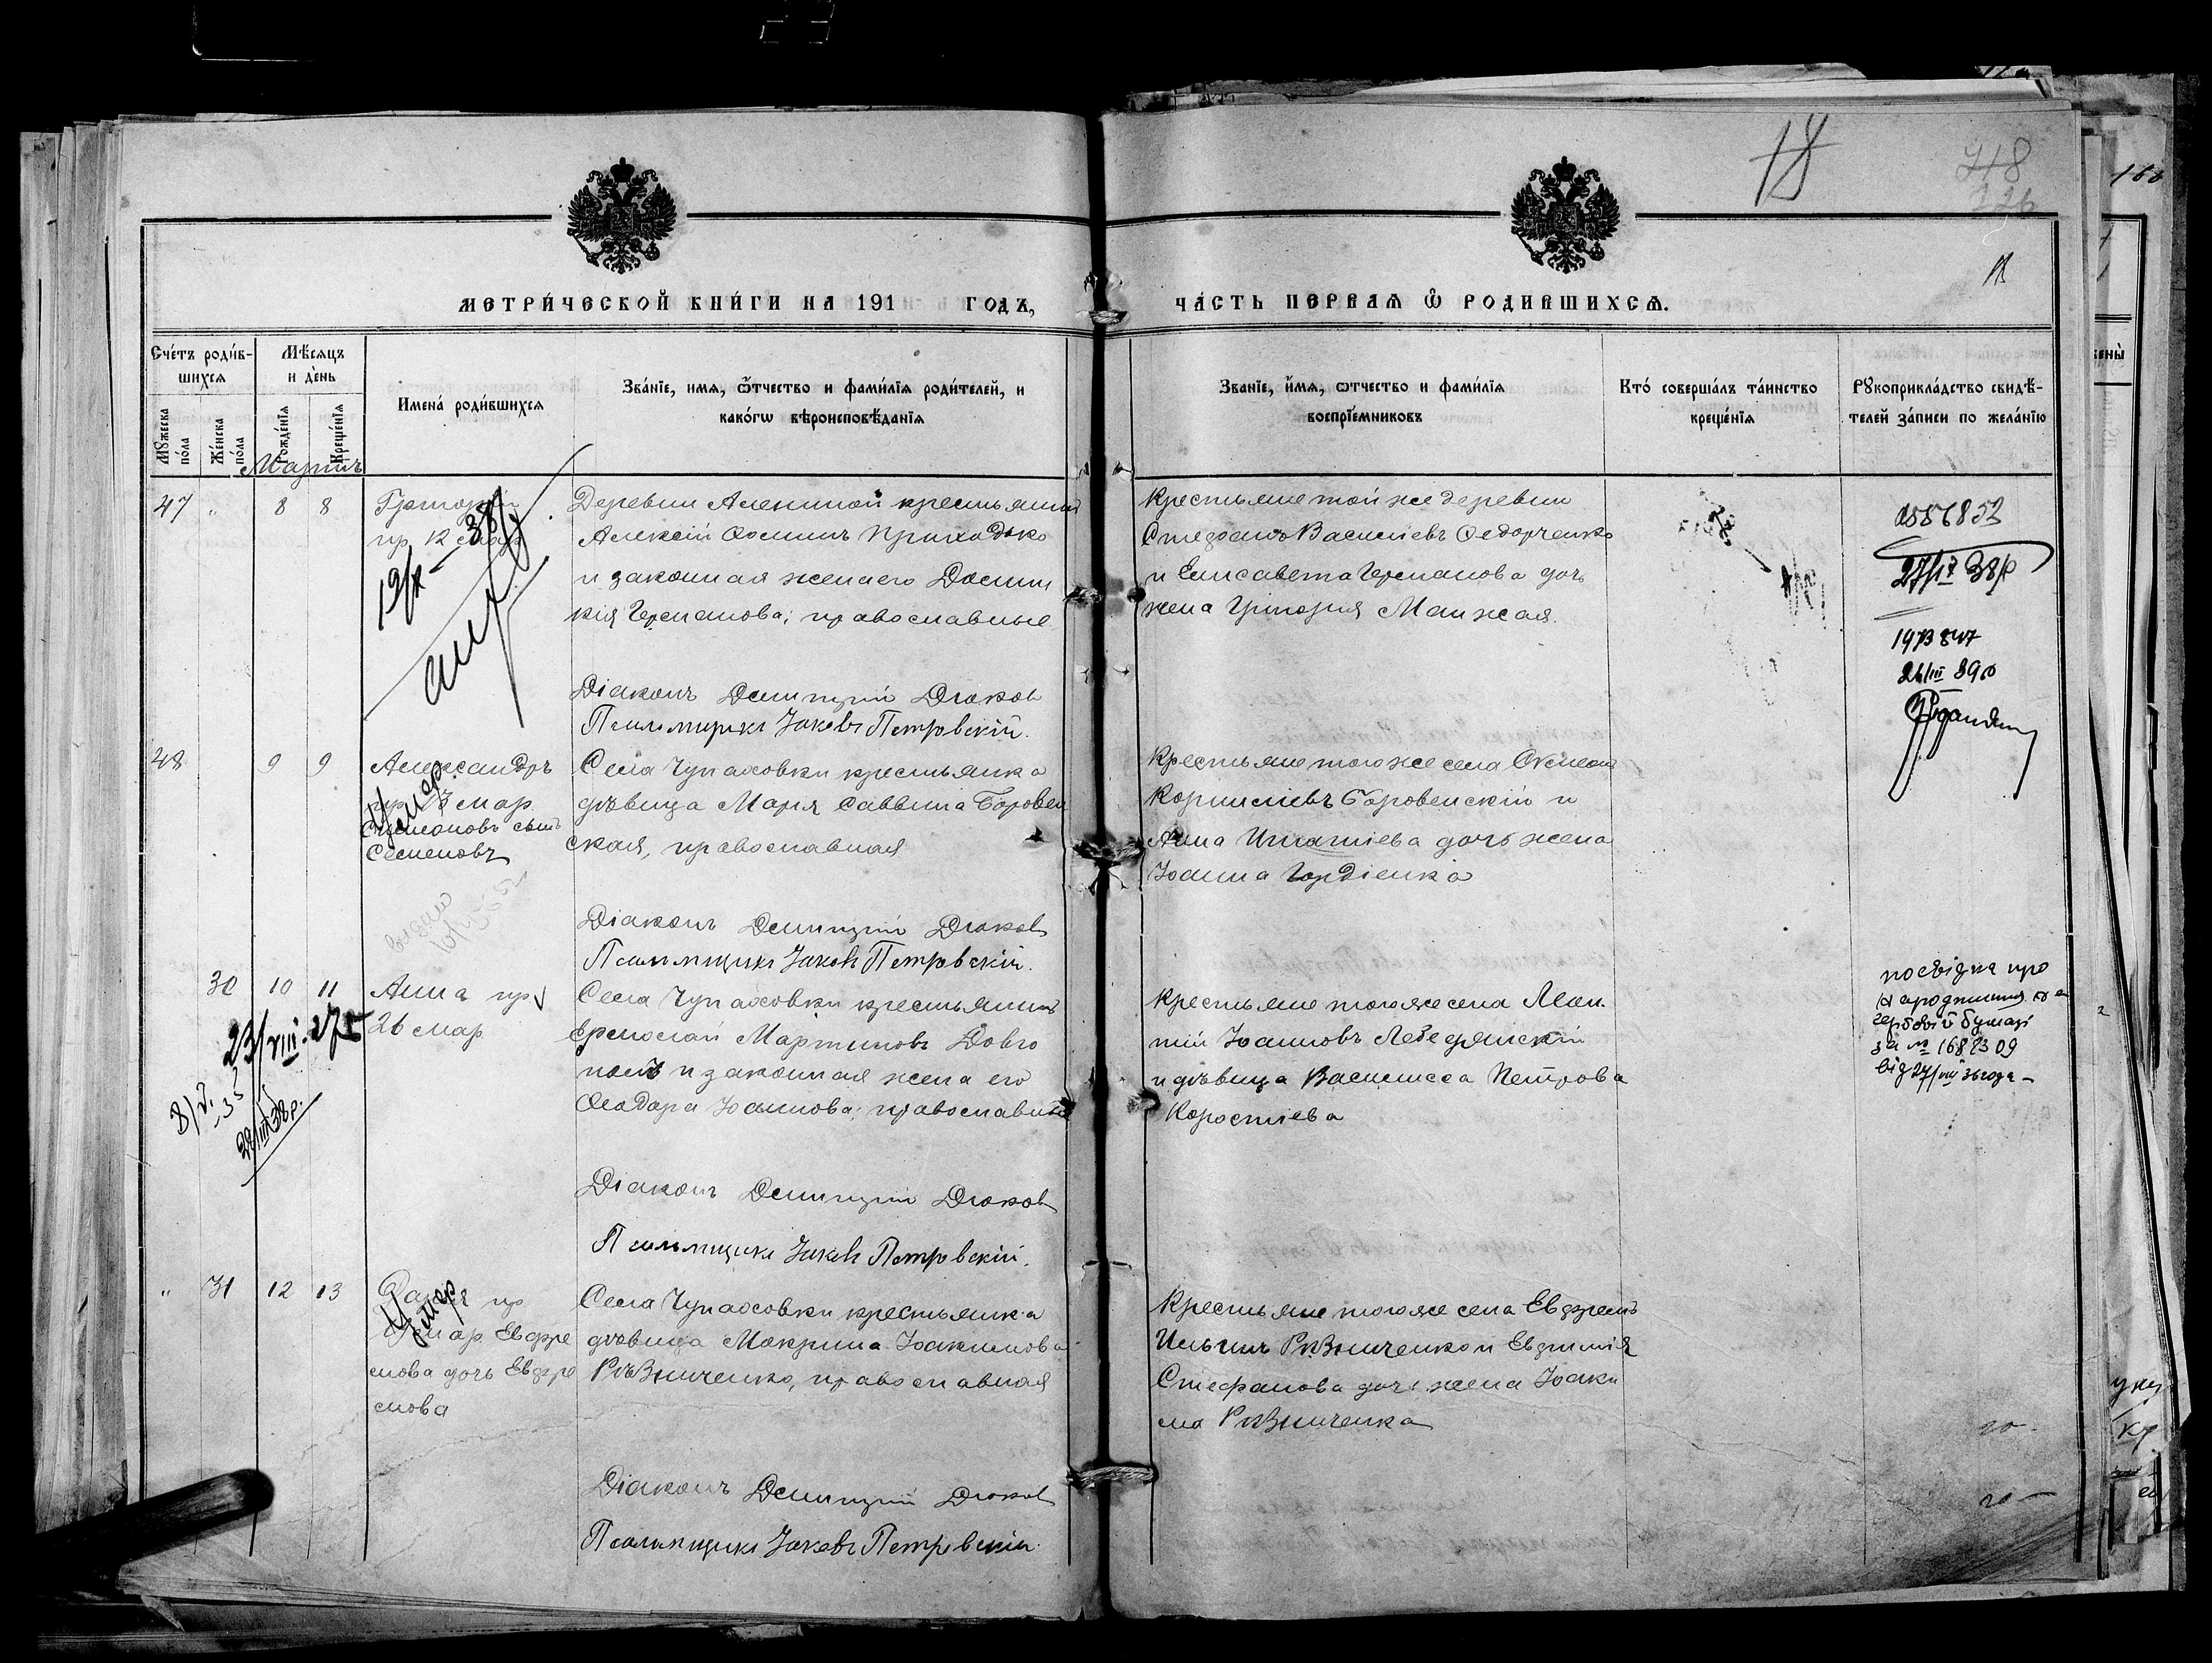 18
718
226
18
168
МЕТРИ́ЧЕСКОЙ КНИ́ГИ НА 191 ГОДЪ,
ЧА́СТЬ ПЕ́РВАѦ Ѽ РОДИ́ВШИХСѦ.
Сче́тъ роди́в-
шихсѧ
Мꙋ́жеска по́ла
Же́нска по́ла
Мѣ́сяцъ
и де́нь
Рожде́нїѧ
Креще́нїѧ
Имена́ роди́вшихсѧ
Зва́нїе, имѧ, ѻ҆́тчество и фами́лїѧ роди́телей, и
како́гѡ вѣроисповѣ́данїѧ
Зва́нїе, и́мѧ, ѻтчество и фами́лїѧ
воспрїе́мниковъ
Кто́ соверша́лъ та́инство
креще́нїѧ
Рꙋкоприкла́дство свидѣ́-
телей за́писи по жела́нїю
Мартъ
47 " 8 8
Григорій
пр. 12 мар
19/X – 38 р
Деревни Алениной крестьянинъ
Алексій Фоминъ Приходько
и законная жена его Домни
кія Германова; православные
Діаконъ Димитрій Дюковъ
Псаломщикъ Іаковъ Петровскій.
Крестьяне той же деревни
Стефанъ Васильевъ Федорченко
и Елисавета Германова дочь
жена Григорія Манжая.
0586852
27/IX 38 р
1973847
26/III 39 р
48 9 9
Александръ
пр. мар.
Симеоновъ сынъ
Семеновъ
Умер
видано
Села Чупаховки крестьянка
дѣвица Марія Саввина Боровен
ская, православная
Діаконъ Димитрій Дюковъ
Псаломщикъ Іаковъ Петровскій.
Крестьяне того же села
Корниліевъ Боровенскій и
Анна Игнатіева дочь жена
Іоанна Гордіенка
30 10 11
Анна пр.
26 мар
23/VIII. 27
29/III 38 р.
Села Чупаховки крестьянинъ
Ермолай Мартиновъ Довго
полъ и законная жена его
Феодора Іоаннова; православные
Діаконъ Димитрій Дюковъ
Псаломщикъ Іаковъ Петровскій.
Крестьяне того же села Леон
тій Іоанновъ Лебедянскій
и дѣвица Василисса Петрова
Коростіева
посвідка про
народження на
гербовій бумазі
за № 168209
від 27/VIII 36 года –
" 31 12 13
Дарія пр
мар. Евфре
мова дочь Евфре
мова
Умер
Села Чупаховки крестьянка
дѣвица Макрина Іоакимова
Рѣзниченко, православная
Діаконъ Димитрій Дюковъ
Псаломщикъ Іаковъ Петровскій.
Крестьяне того же села Евфремъ
Ильинъ Рѣзниченко и Евфимія
Стефанова дочь жена Іоаки
ма Рѣзниченка